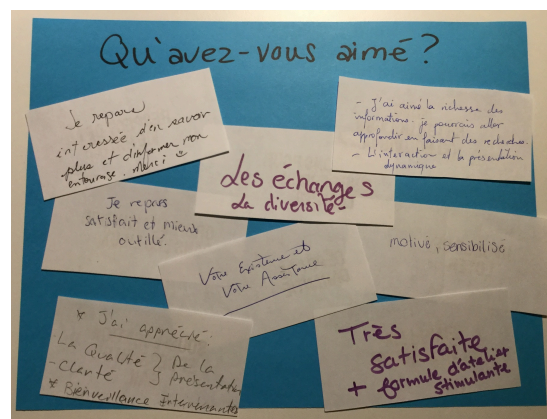 Qu'avez-vous aimé ?
Je repars
interessée d'en savoir
plus et d'informer mon
entourage. Merci
- J'ai aimé la richesse des
informations. je pourrais aller
approfondir en faisant des recherches.
- L'interaction et la présentation
dynamique
Les échanges
La diversité-
Je repars
satisfait et mieux
outillé.
Votre Existence et
Votre Assistance
motivé, sensibilisé
* J'ai apprécié:
La Qualité } De la
- Clarté } présentation
* Bienveillance Intervenantes
Très
satisfaite
+ formule d'atelier
stimulante